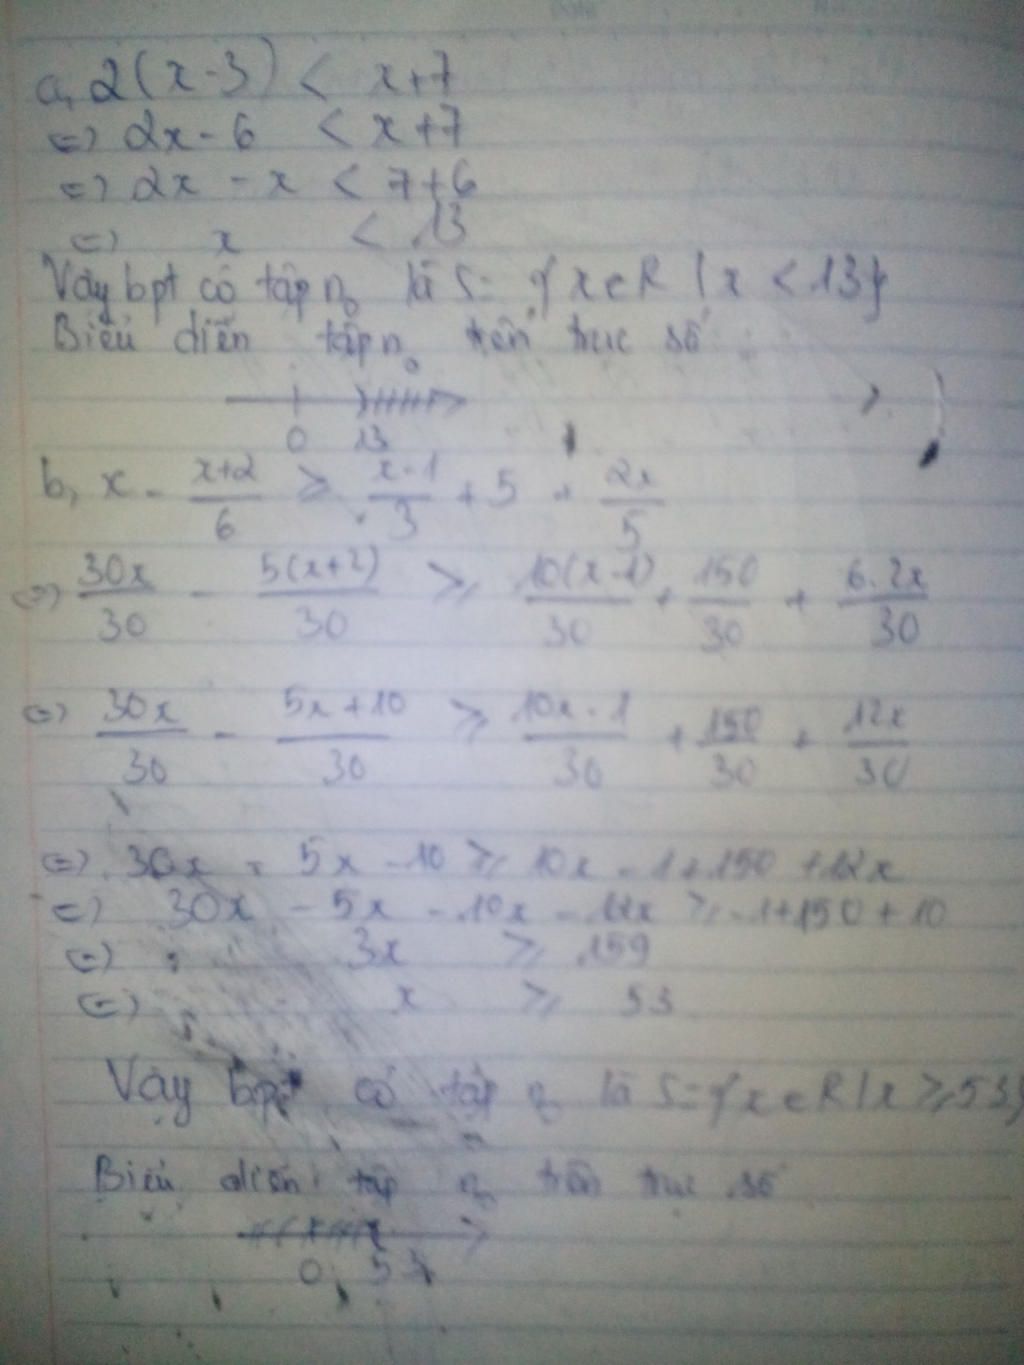 a, 2(x-3) < x+7
<=> 2x - 6 < x+7
<=> 2x - x < 7+6
<=> x < 13
Vậy bpt có tập no là S = {x ∈ R | x < 13}
Biểu diễn tập no trên trục số
0 13
b, x - (x+2)/6 ≥ (x-1)/3 + 5 + 2x/5
<=> 30x/30 - 5(x+2)/30 ≥ 10(x-1)/30 + 150/30 + 6.2x/30
<=> 30x/30 - 5x+10/30 ≥ 10x-1/30 + 150/30 + 12x/30
<=> 30x - 5x - 10 ≥ 10x - 1 + 150 + 12x
<=> 30x - 5x - 10x - 12x ≥ -1+150+10
<=> 3x ≥ 159
<=> x ≥ 53
Vậy bpt có tập no là S = {x ∈ R | x ≥ 53}
Biểu diễn tập no trên trục số
0 53